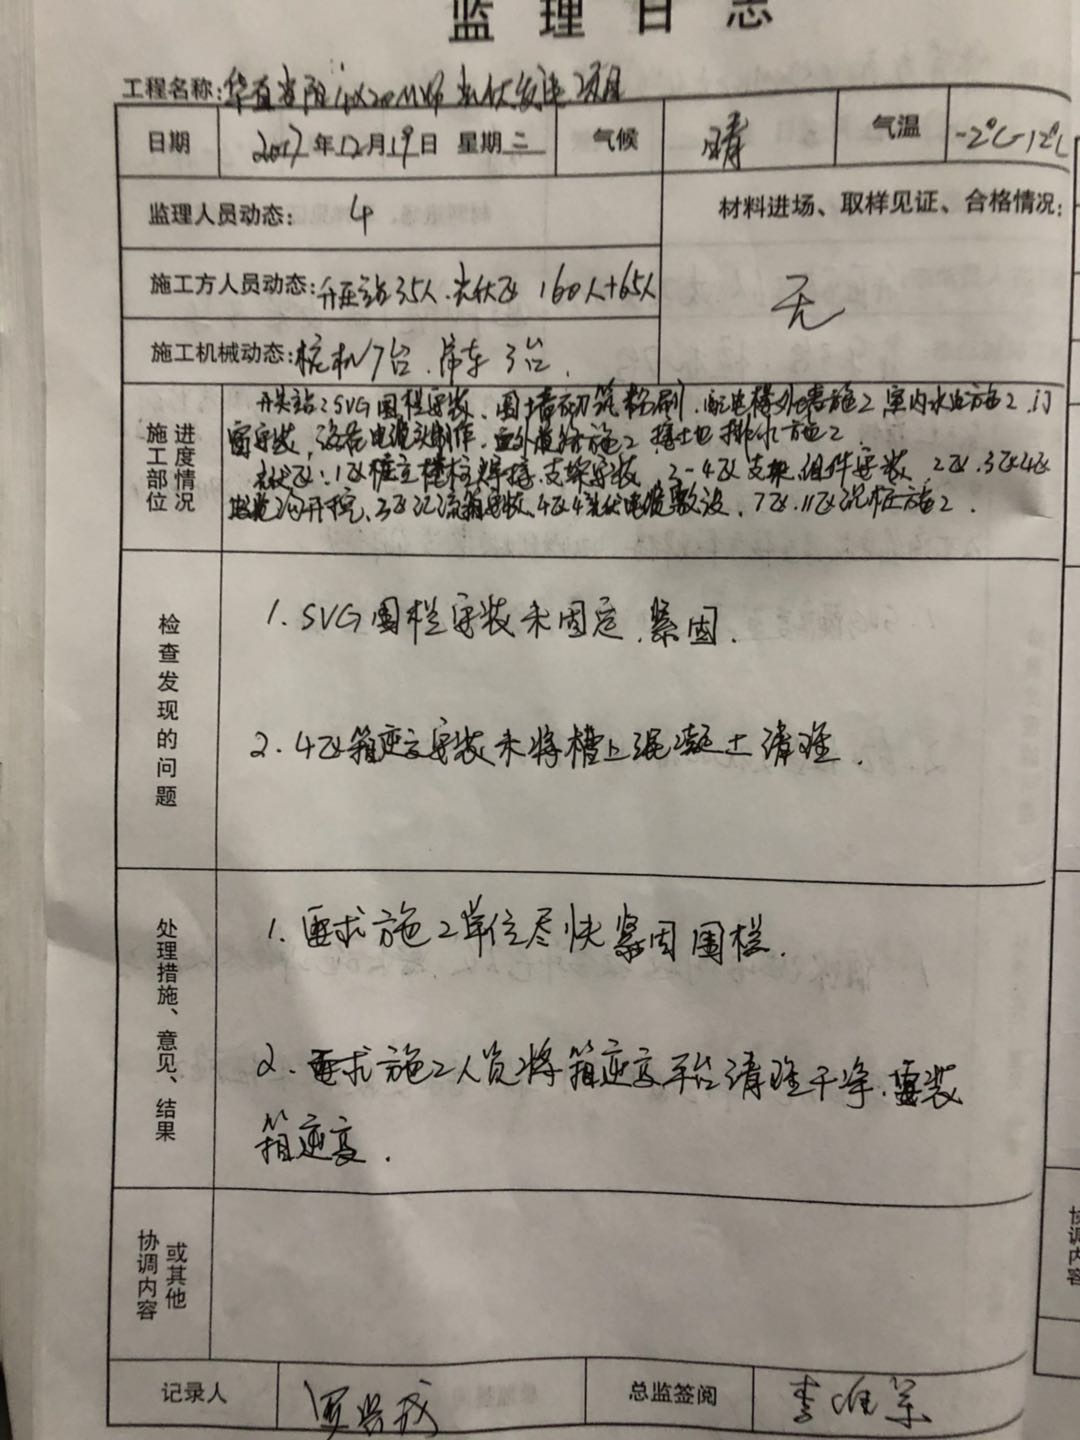 监理日志
工程名称:
日期 2017年12月19日 星期二 气候 晴 气温 -2℃-12℃
监理人员动态: 4
材料进场、取样见证、合格情况:
施工方人员动态: 升压站35人.光伏区 160人+65人
无
施工机械动态: 桩机7台.吊车3台.
施工部位 进度情况
升压站:SVG围栏安装、围墙砌筑粉刷.配电楼外墙施工.室内水电施工.门
窗安装,设备电缆头制作.室外道路施工.排水施工.
光伏区:1区桩立柱焊接.支架安装.2-4区支架.组件安装.2区.3区4区
沟开挖、3区汇流箱安装、4区光伏电缆敷设、7区.11区沉桩施工.
检查发现的问题
1.SVG围栏安装未固定.紧固.
2.4区箱逆变安装未将槽上混凝土清理.
处理措施、意见、结果
1.要求施工单位尽快紧固围栏.
2.要求施工人员将箱逆变平台清理干净.安装
箱逆变.
协调内容 或其他
记录人
总监签阅
协调内容